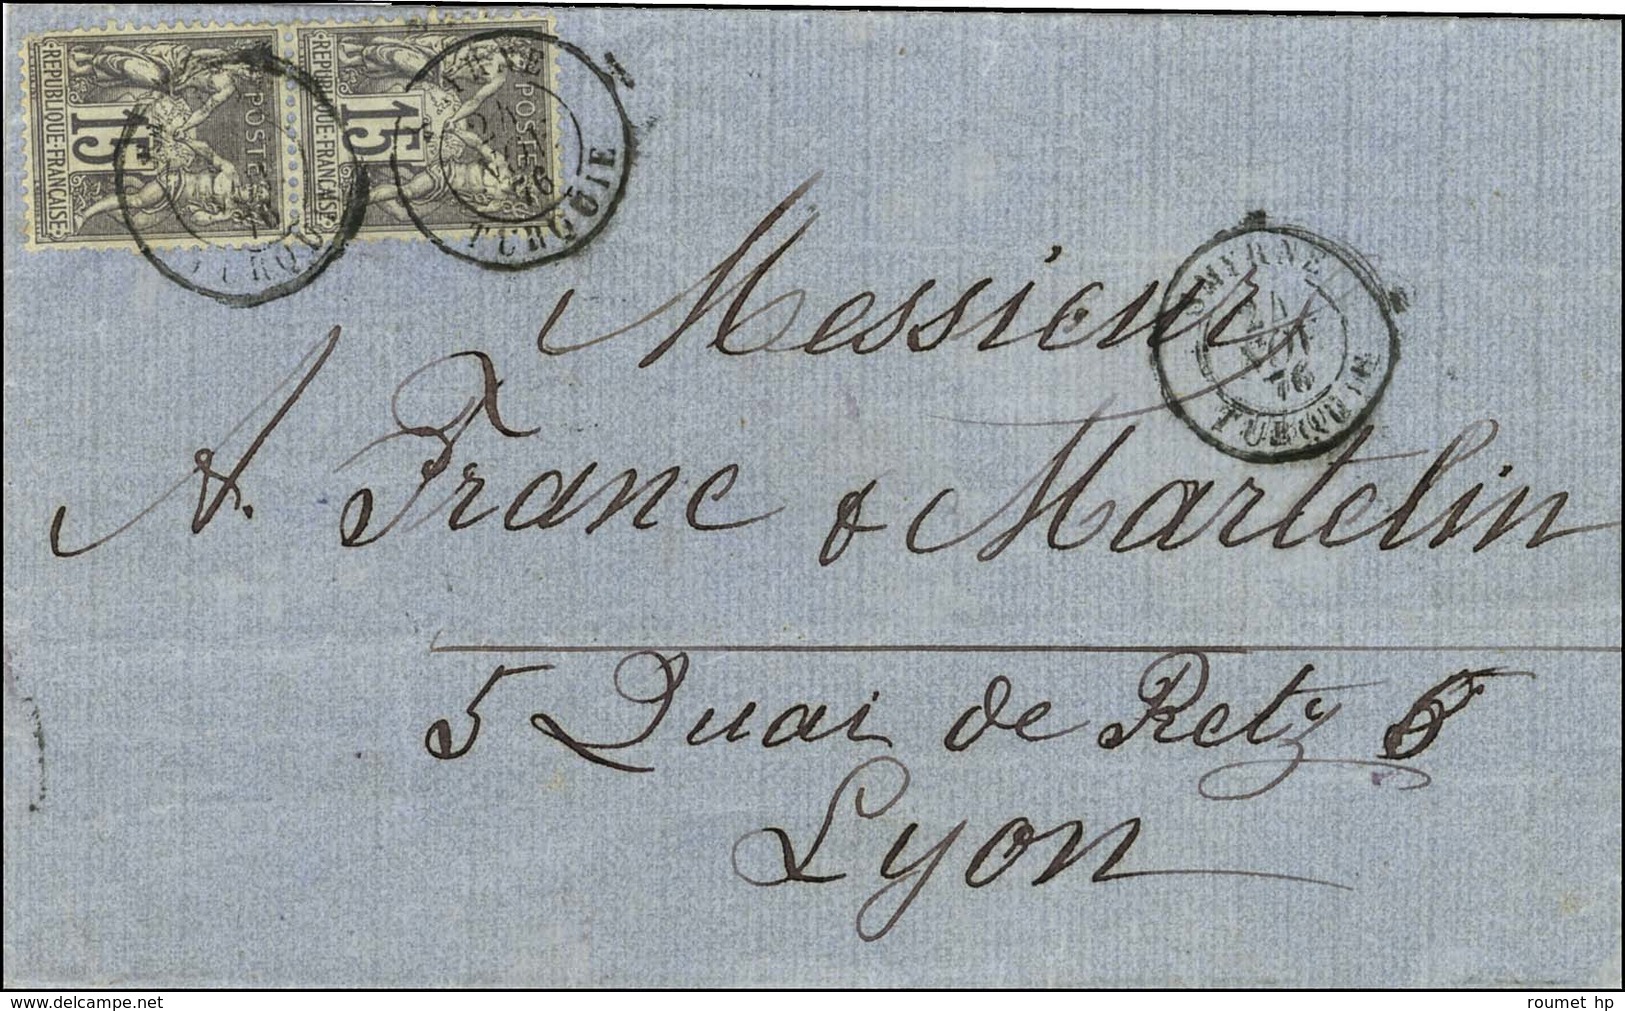 REPUBLIQUE·FRANÇAISE
15
POSTES
REPUBLIQUE·FRANÇAISE
15
POSTES
TURQUIE
76
SMYRNE
24
AOUT
76
TURQUIE
Messieurs
A. Franc & Martelin
5 Quai de Retz 5
Lyon
www.delcampe.net
roumet hp